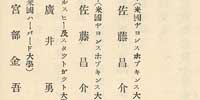 （米國ヂヨンスホプキンス大
佐藤昌介
（米國ヂヨンスホプキンス大
佐藤昌介
ルスヒー及スタツトガツト大
廣井勇
（米國ハーバード大學）
宮部金吾